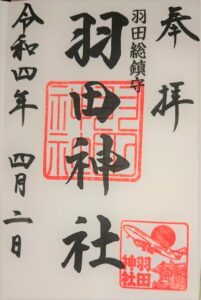 奉拝
羽田総鎮守
羽田神社
令和四年 四月二日
羽田
神社